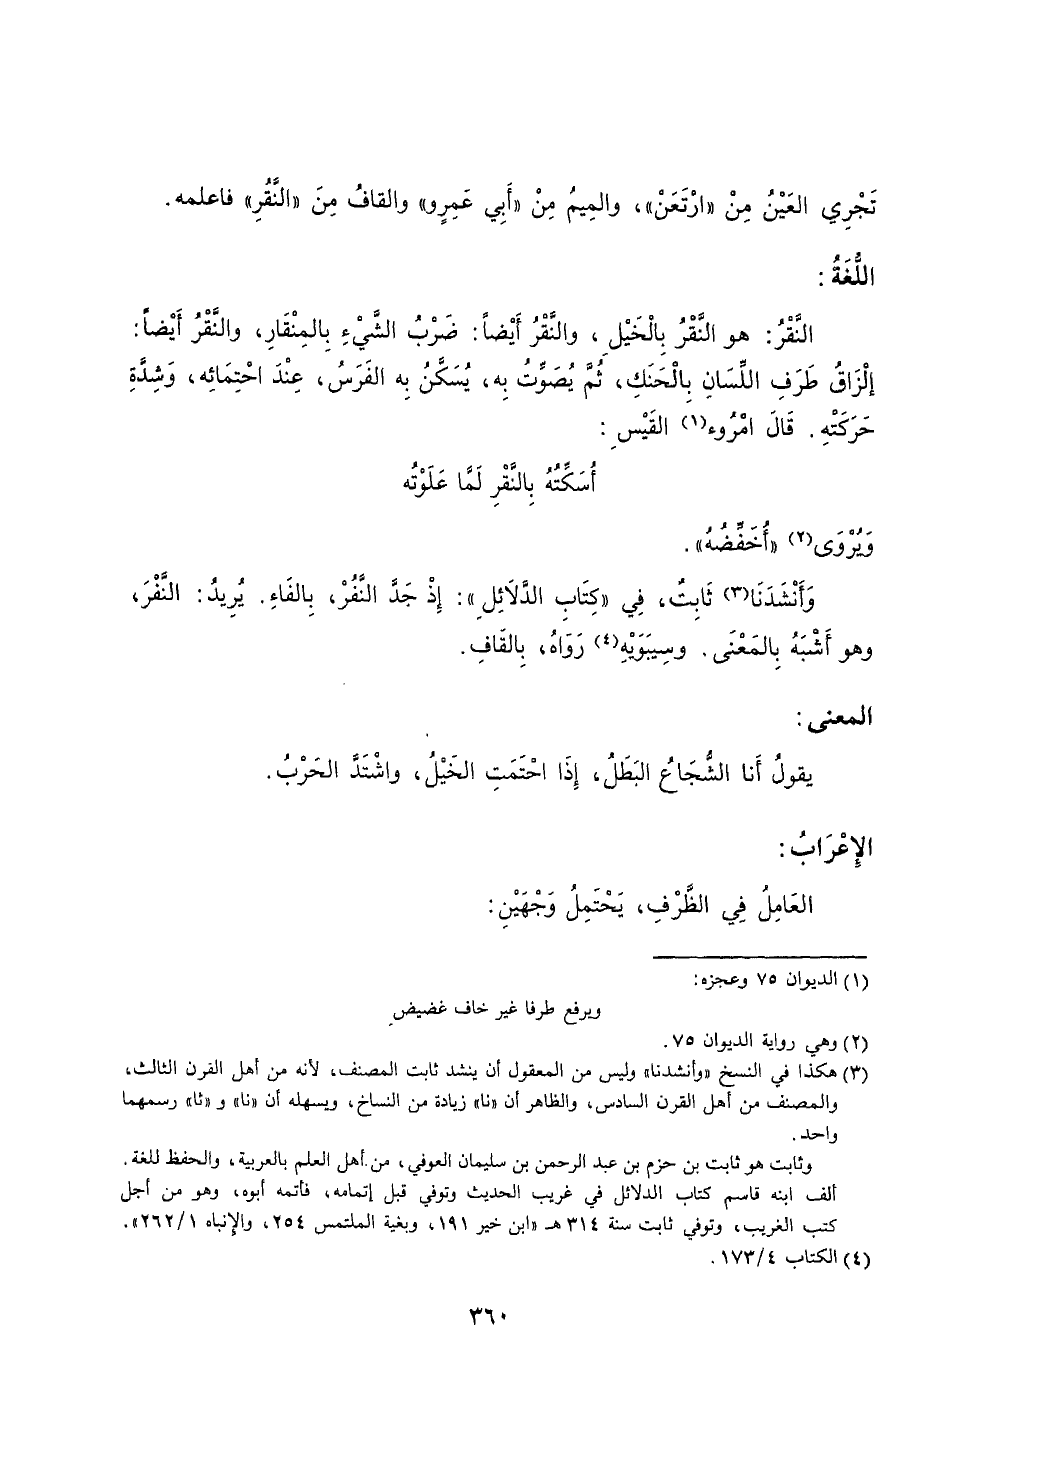 تَجْرِي العَيْنُ مِنْ «ارْتَعَنْ»، والمِيمُ مِنْ «أَبِي عَمِرٍو» والقافُ مِنَ «النَّقُرِ» فاعلمه.
اللُّغَةُ :
النَّقْرُ: هو النَّقْرُ بِالْخَيْلِ، والنَّقْرُ أَيْضاً: ضَرْبُ الشَّيْءِ بِالمِنْقَارِ، والنَّقْرُ أَيْضاً:
إلْزَاقُ طَرَفِ اللِّسَانِ بِالْحَنَكِ، ثُمَّ يُصَوِّتُ بِه، يُسَكَّنُ بِه الفَرَسُ، عِنْدَ احْتِمَائِه، وَشِدَّةِ
حَرَكَتْهِ. قَالَ امْرُوء(١) القَيْسِ:
أُسَكِّتُهُ بِالنَّقْرِ لَمَّا عَلَوْتُه
وَيُرْوَى(٢) «أُخَفِّضُهُ».
وَأَنْشَدَنَا(٣) ثَابِتٌ، فِي «كِتَابِ الدَّلَائِلِ»: إِذْ جَدَّ النَّفُرْ، بِالفَاءِ. يُرِيدُ: النَّفْرَ،
وهو أَشْبَهُ بِالمَعْنَى. وسِيبَوَيْهِ(٤) رَوَاهُ، بِالقَافِ.
المعنى:
يقولُ أَنا الشُّجَاعُ البَطَلُ، إِذَا احْتَمَتِ الخَيْلُ، واشْتَدَّ الحَرْبُ.
الإِعْرَابُ:
العَامِلُ فِي الظَّرْفِ، يَحْتَمِلُ وَجْهَيْنِ:
(١) الديوان ٧٥ وعجزه:
ويرفع طرفا غير خاف غضيضِ
(٢) وهي رواية الديوان ٧٥.
(٣) هكذا في النسخ «وأنشدنا» وليس من المعقول أن ينشد ثابت المصنف، لأنه من أهل القرن الثالث،
والمصنف من أهل القرن السادس، والظاهر أن «نا» زيادة من النساخ، ويسهله أن «نا» و «ثا» رسمهما
واحد.
وثابت هو ثابت بن حزم بن عبد الرحمن بن سليمان العوفي، من أهل العلم بالعربية، والحفظ للغة.
ألف ابنه قاسم كتاب الدلائل في غريب الحديث وتوفي قبل إتمامه، فأتمه أبوه، وهو من أجل
كتب الغريب، وتوفي ثابت سنة ٣١٤ هـ «ابن خير ١٩١، وبغية الملتمس ٢٥٤، والإنباه ٢٦٢/١».
(٤) الكتاب ١٧٣/٤.
٣٦٠